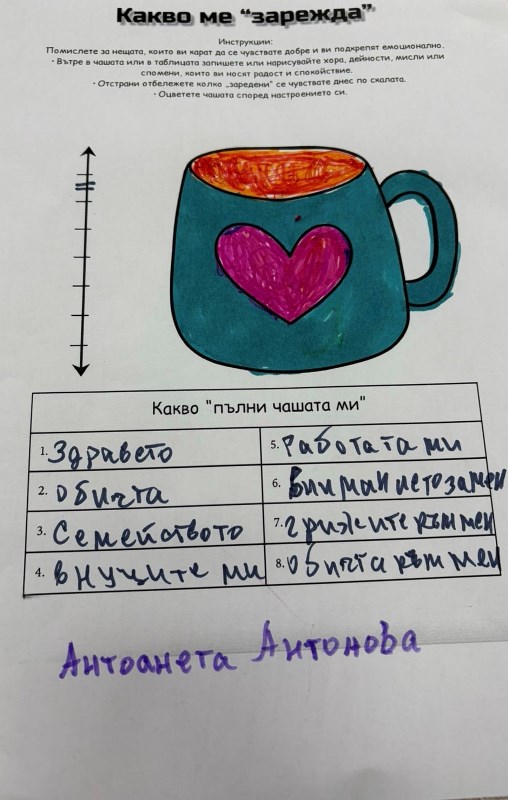 Какво ме “зарежда”
Инструкции:
Помислете за нещата, които ви карат да се чувствате добре и ви подкрепят емоционално.
• Вътре в чашата или в таблицата запишете или нарисувайте хора, дейности, мисли или
спомени, които ви носят радост и спокойствие.
• Отстрани отбележете колко „заредени“ се чувствате днес по скалата.
• Оцветете чашата според настроението си.
Какво "пълни чашата ми"
1. Здравето
2. обичта
3. Семейството
4. внуците ми
5. работата ми
6. вниманието за мен
7. грижите към мен
8. обичта към мен
Антоанета Антонова